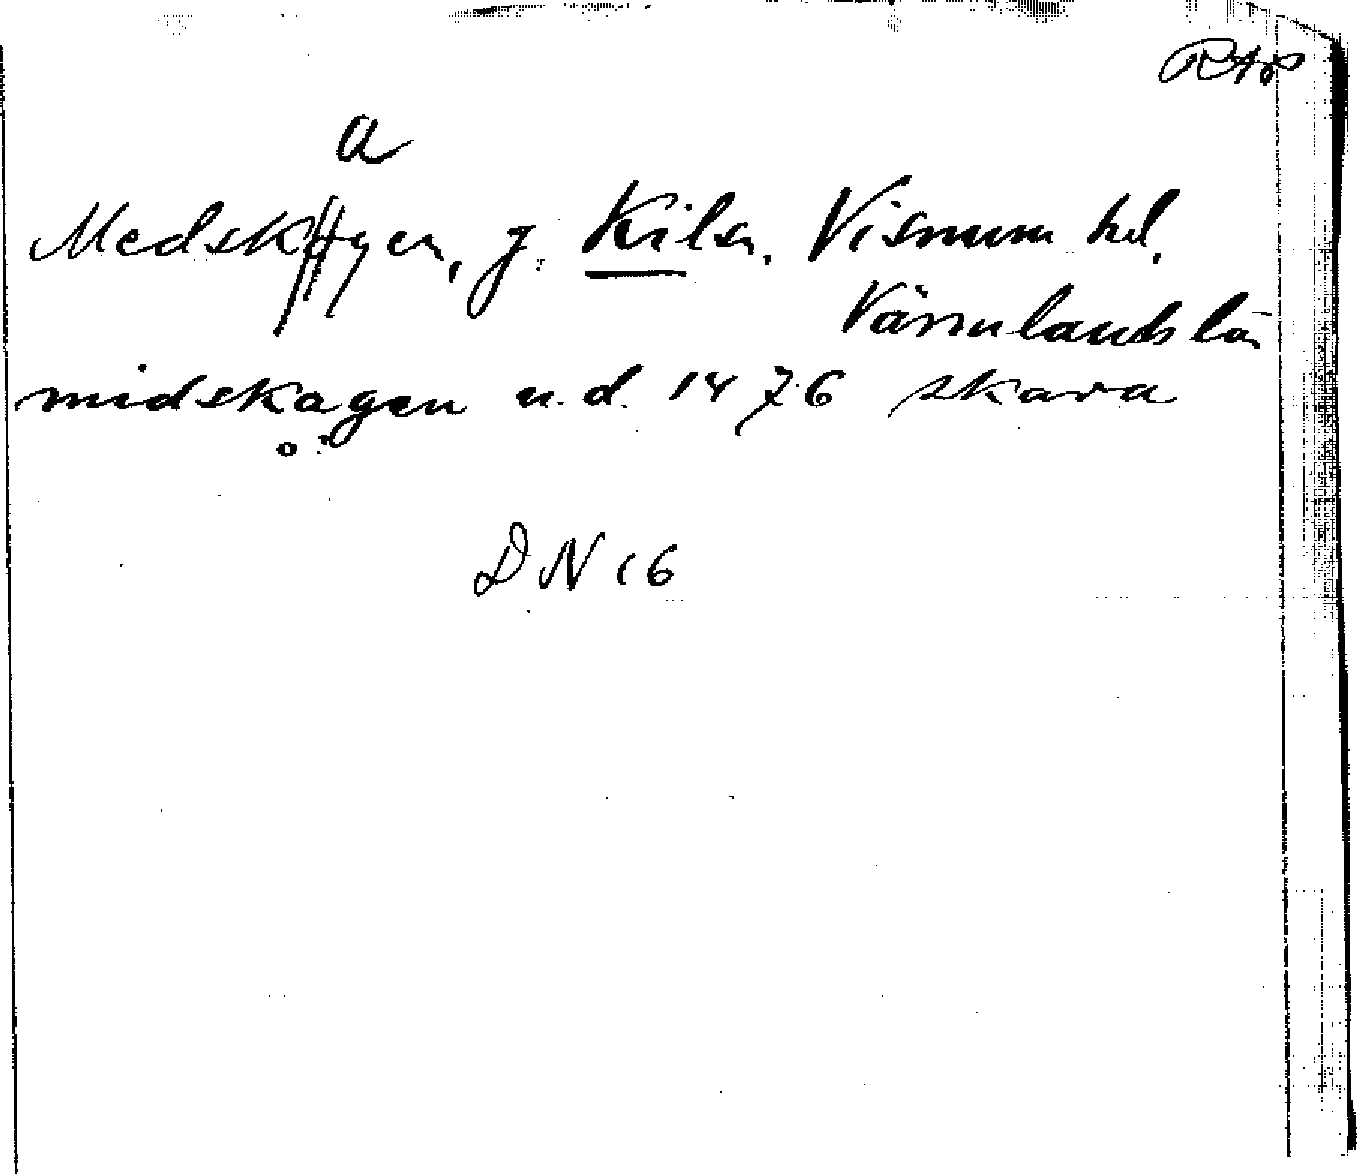 a
Medskagen, g. Kils sn, Visnum hd.
Värmlands län
midskagen u.d. 1476 skara
DN 16